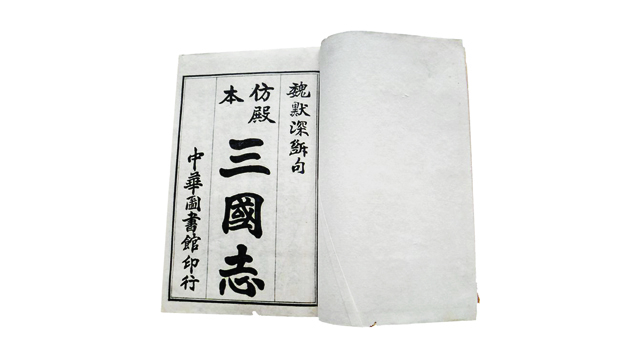 魏默深斷句
仿殿本
三國志
中華圖書館印行